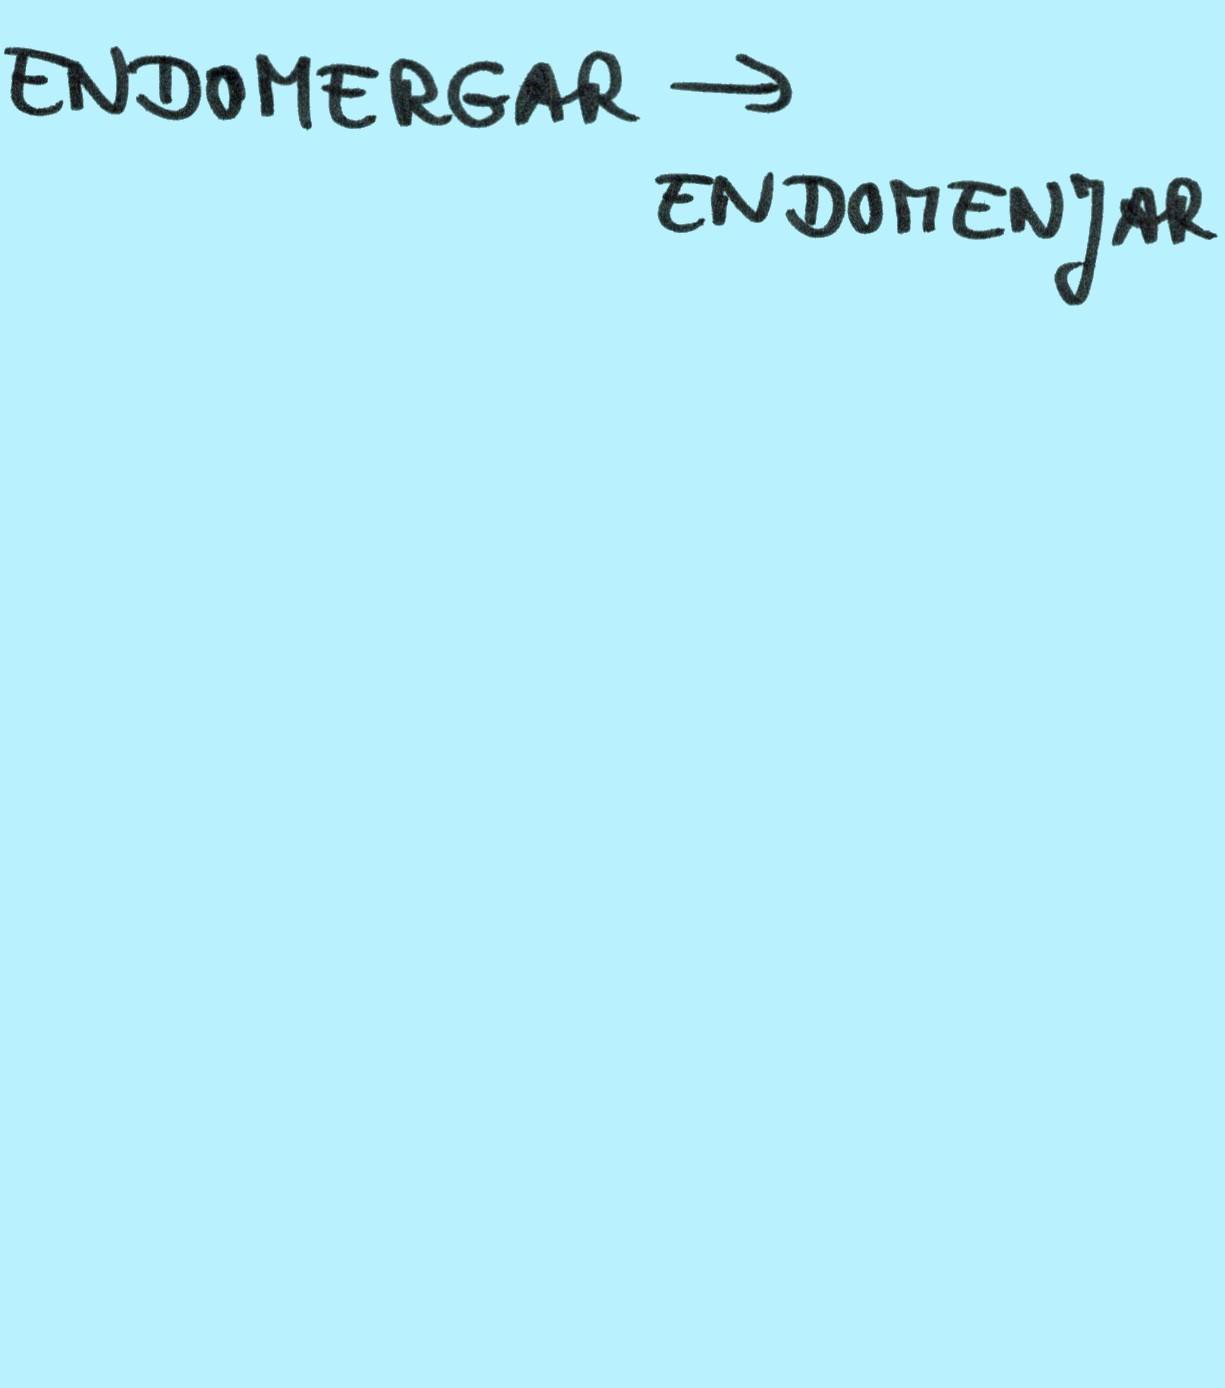 ENDOMERGAR →
ENDOMENJAR